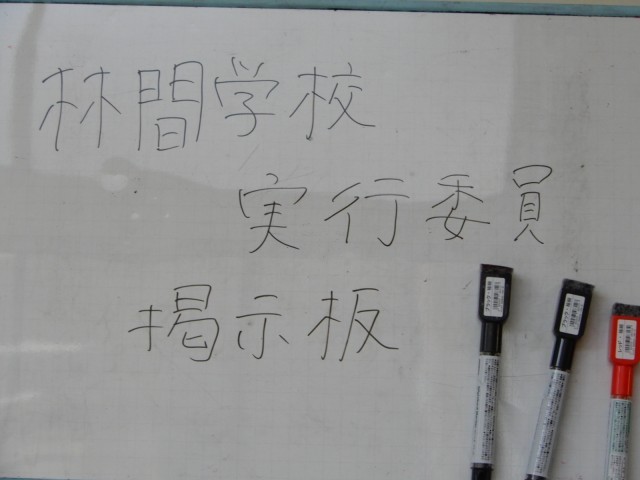 林間学校
実行委員
掲示板